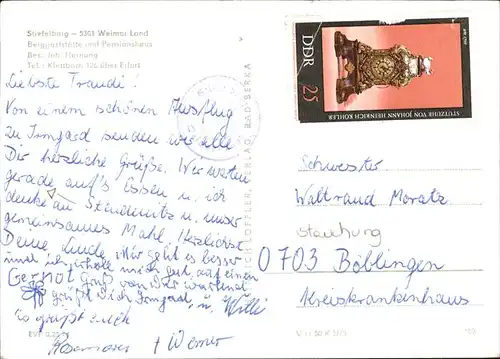 Stiefelburg – 5301 Weimar Land
Berggaststätte und Pensionshaus
Bes.: Inh. Hornung
Tel.: Kletbach 324 über Erfurt
Liebste Traudi!
Von einem schönen Ausflug
zu Irmgard senden wir alle
Dir herzliche Grüße. Wir warten
gerade auf's Essen u. ich
denke an Studenitz u. unser
gemeinsames Mahl. Herzlichst
Deine Linde. Mir geht es besser
und ich erhole mich gut, auf einen
Gernot gruß
grüßt Dich Irmgard, u. Willi
Es grüßt euch
Rosemarie + Werner
BAD BERKA
DDR
25
STUTZUHR VON JOHANN HEINRICH KÖHLER
Schwester
Waltraud Moratz
0703 Böblingen
Kreiskrankenhaus
EVP 0,25